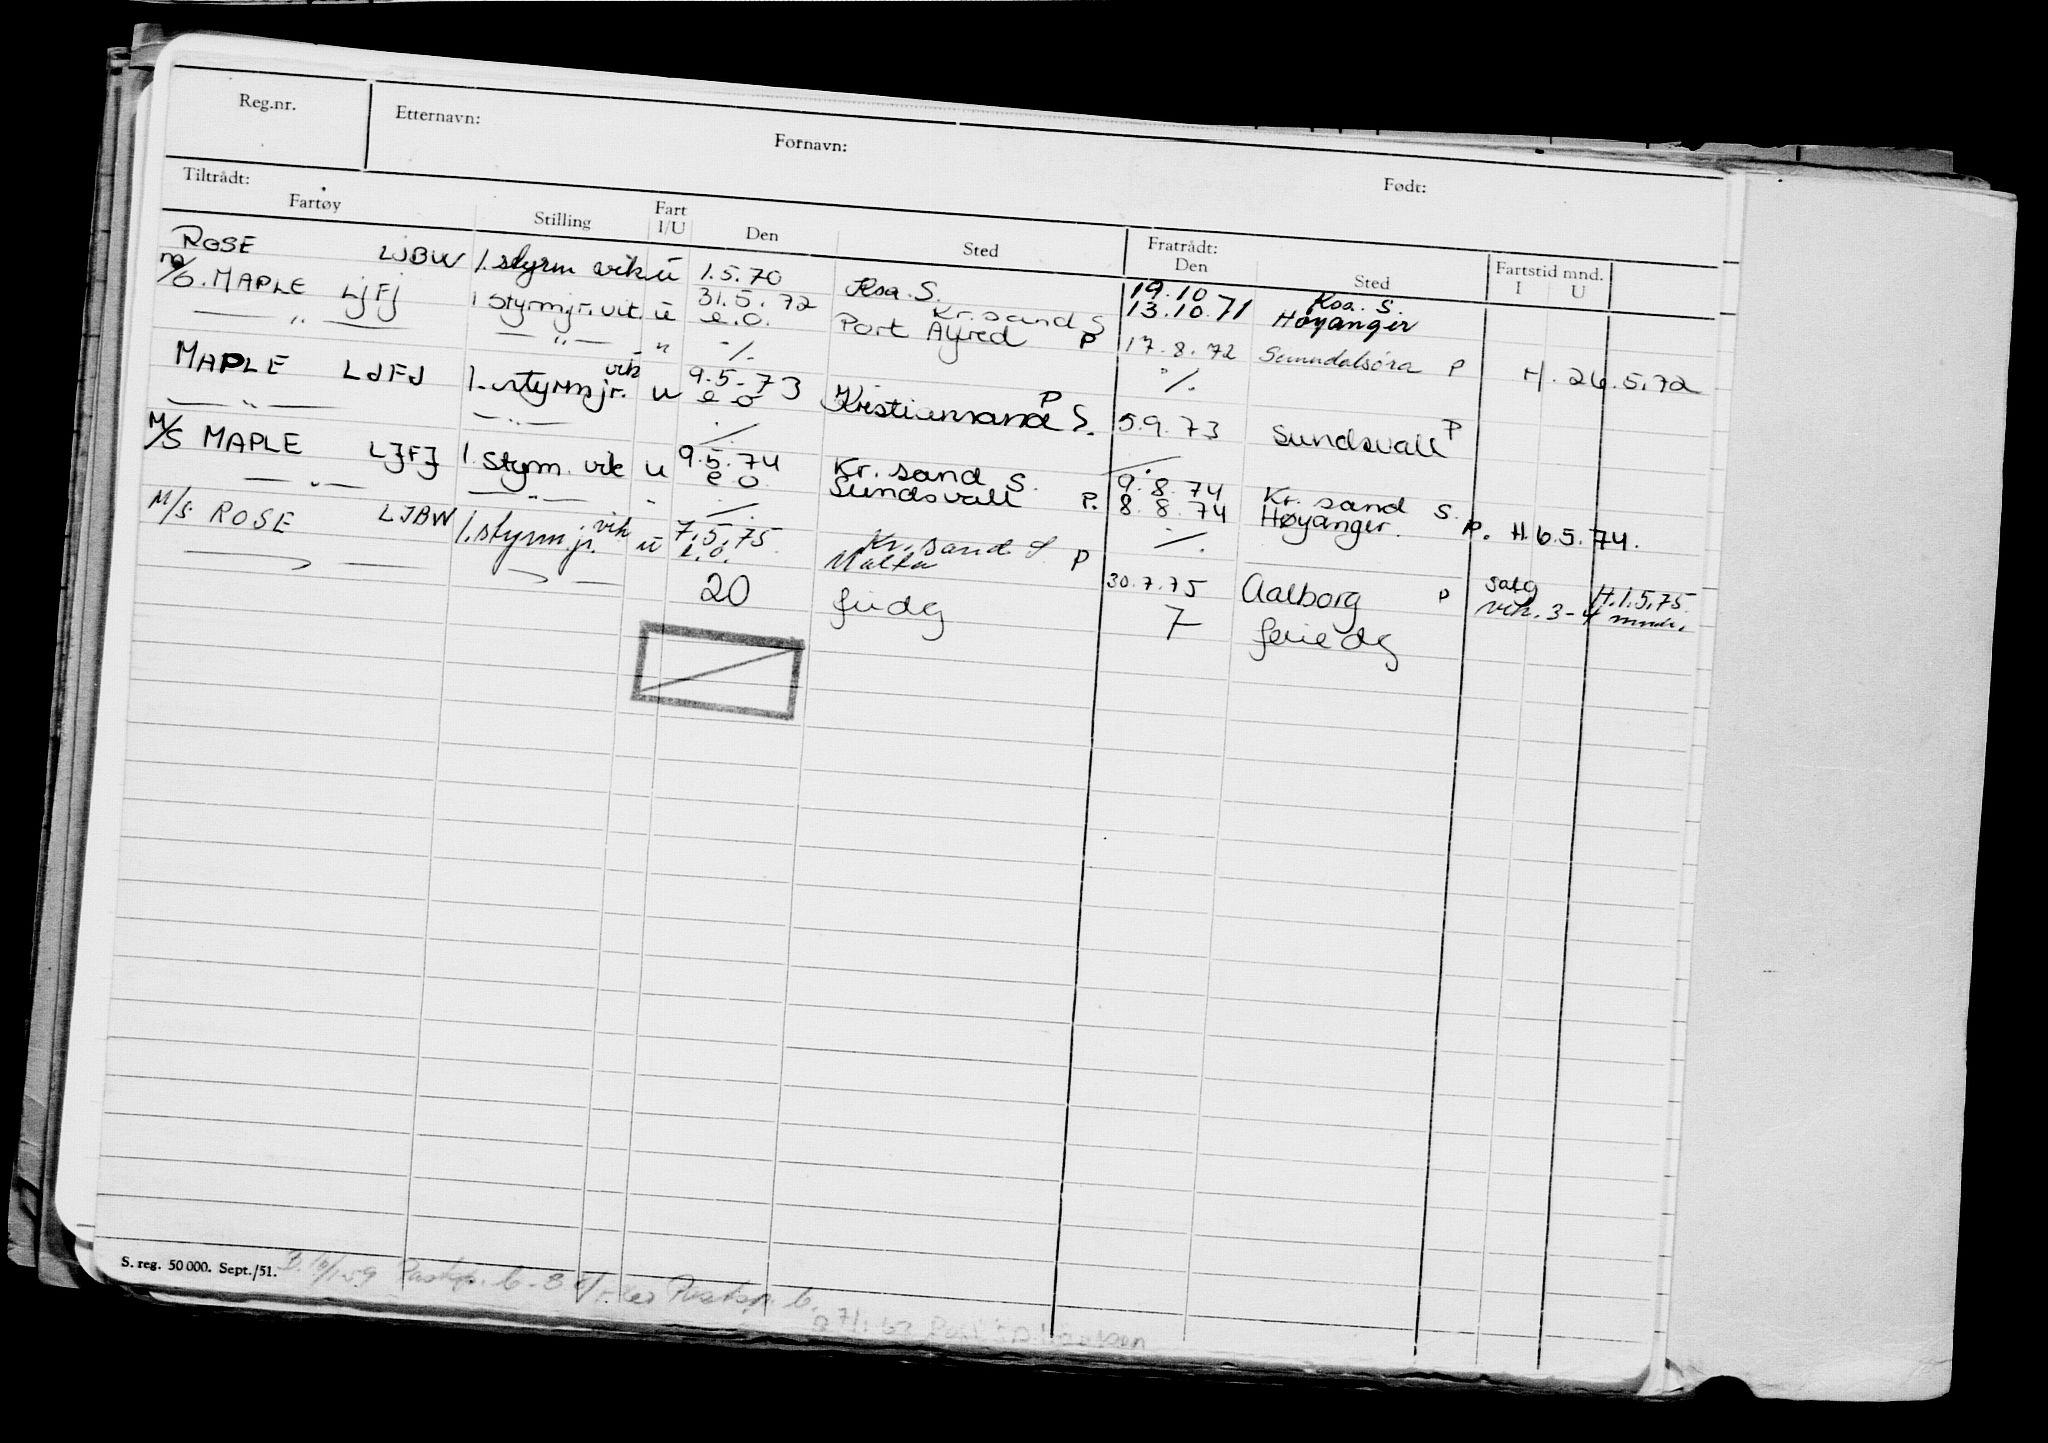 Reg.nr. Etternavn: Fornavn: Født:
Tiltrådt: Fratrådt:
Fartøy Stilling Fart I/U Den Sted Den Sted Fartstid mnd. I U
ROSE LJBW 1. styrm vik u 1.5.70 Krs. S. 19.10 Krs. S.
13.10.71 Høyanger
M/S. MAPLE LJFJ 1 styrm jr. vik. u 31.5.72 Kr. sand S
— " — — " — " e.o. Port Alfred P 17.8.72 Sunndalsøra P H. 26.5.72
./. ./.
MAPLE LJFJ 1. styrm jr. vik u 9.5.73 Kristiansand S. P
— " — — " — e o 5.9.73 Sundsvall P
./. ./.
M/S MAPLE LJFJ 1. styrm. vik u 9.5.74 Kr. sand S. 9.8.74 Kr. sand S.
— " — — " — " e o. Sundsvall P. 8.8.74 Høyanger. P. H. 6.5.74.
./. ./.
M/S. ROSE LJBW 1. styrm jr. vik u 7.5.75. Kr. sand S P
e.o. Malta 30.7.75 Aalborg P salg H. 1.5.75.
20 fridg 7 feriedg vik. 3-4 mndr.
S. reg. 50 000. Sept./51.